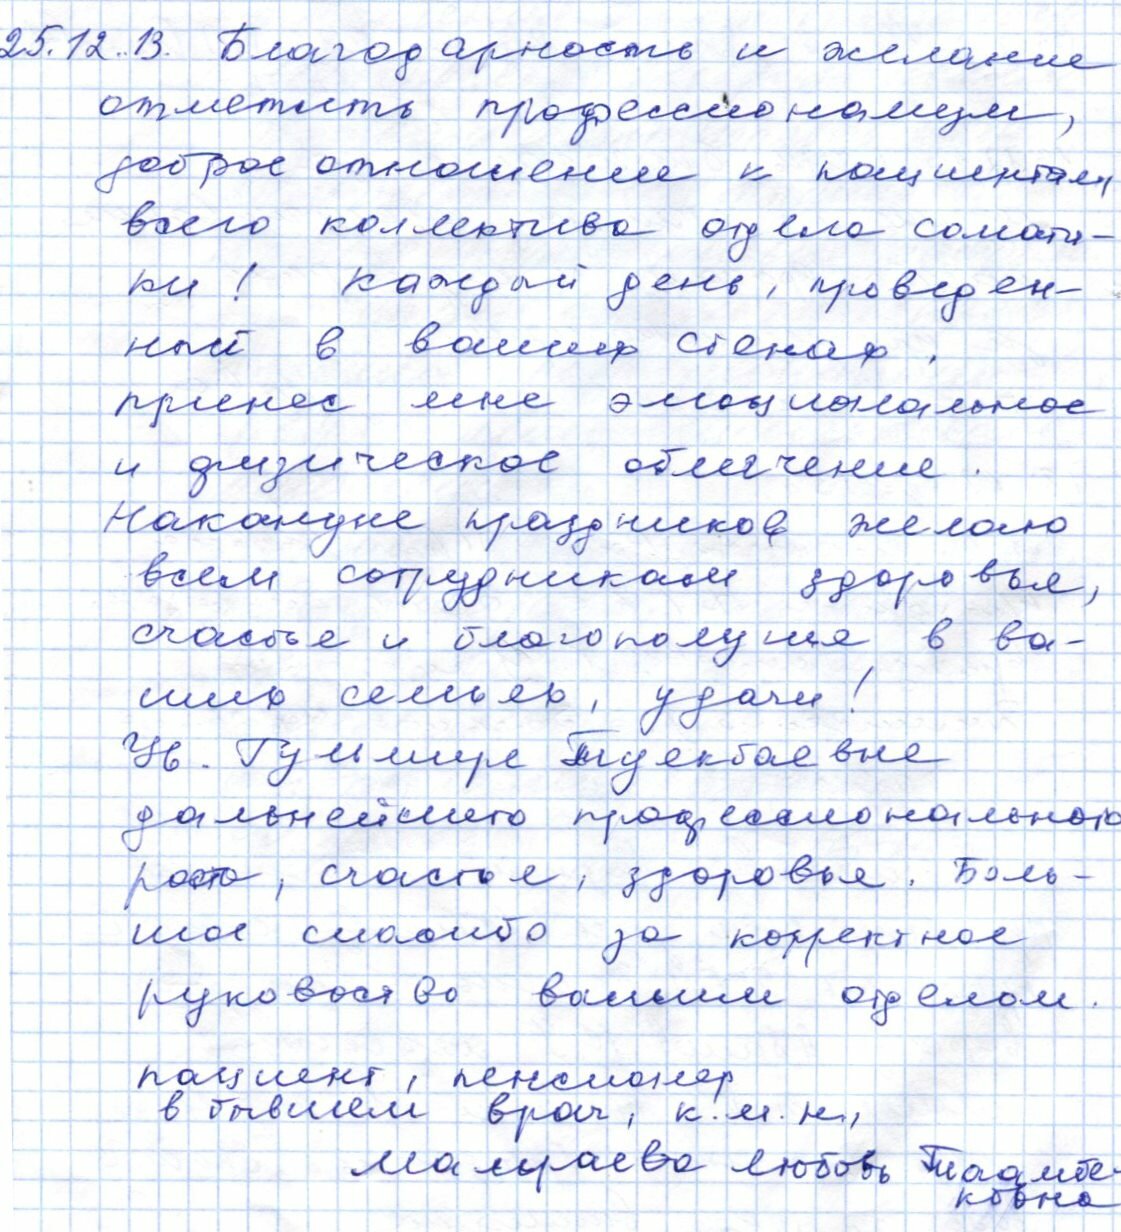 25.12.13. Благодарность и желание
отметить профессионализм,
доброе отношение к пациентам
всего коллектива отдела сомати-
ки! Каждый день, проведен-
ный в ваших стенах,
принес мне эмоциональное
и физическое облегчение.
Накануне праздников желаю
всем сотрудникам здоровья,
счастья и благополучия в ва-
ших семьях, удачи!
Ув. Гульмире Тцекбаевне
дальнейшего профессионального
роста, счастья, здоровья. Боль-
шое спасибо за корректное
руковоство вашим отделом.
пациент, пенсионер
в бывшем врач, к.м.н.,
Любовь